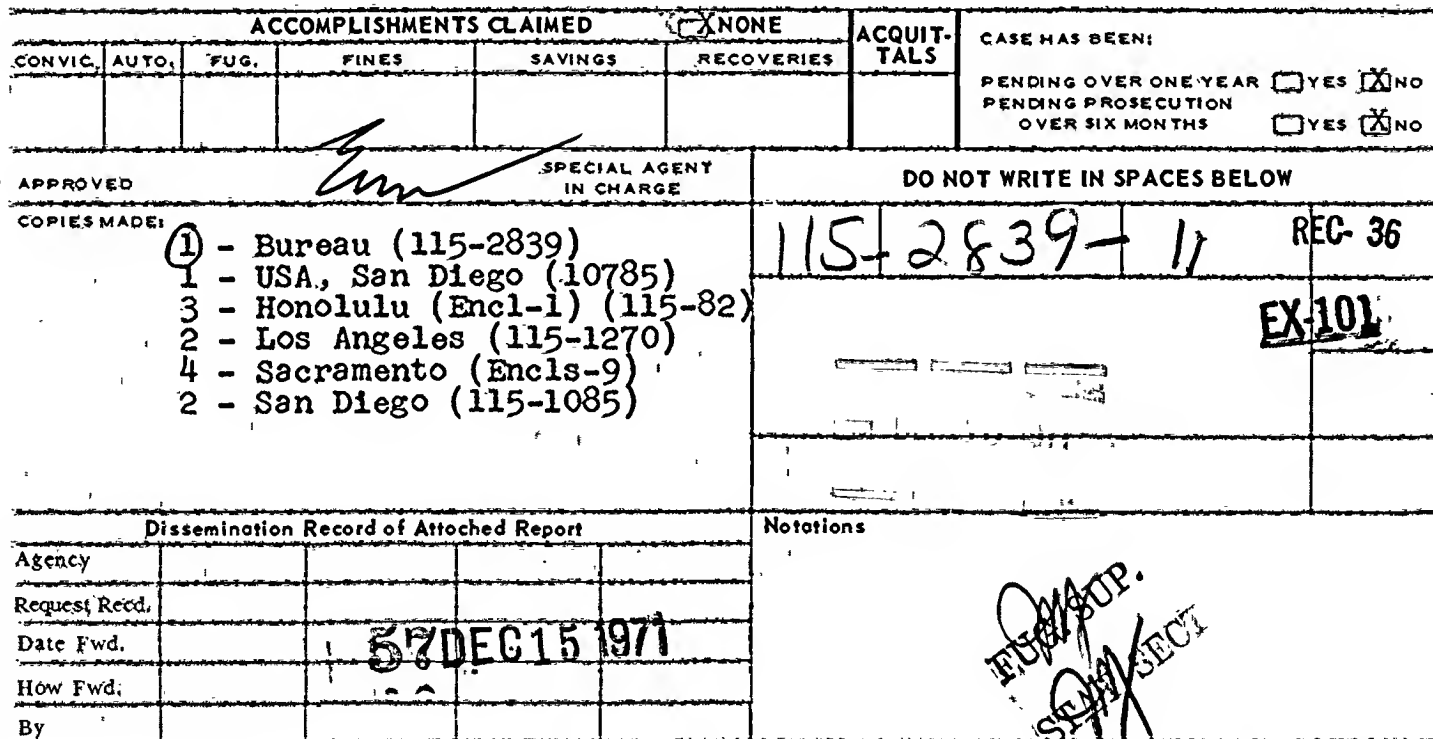 ACCOMPLISHMENTS CLAIMED X NONE
ACQUIT-
TALS
CASE HAS BEEN:
CONVIC. AUTO. FUG. FINES SAVINGS RECOVERIES
PENDING OVER ONE YEAR YES X NO
PENDING PROSECUTION
OVER SIX MONTHS YES X NO
APPROVED
SPECIAL AGENT
IN CHARGE
DO NOT WRITE IN SPACES BELOW
COPIES MADE:
1 - Bureau (115-2839)
1 - USA, San Diego (10785)
3 - Honolulu (Encl-1) (115-82)
2 - Los Angeles (115-1270)
4 - Sacramento (Encls-9)
2 - San Diego (115-1085)
115-2839-11
REC- 36
EX-101
Dissemination Record of Attached Report
Notations
Agency
Request Recd.
Date Fwd.
How Fwd.
By
57 DEC 15 1971
SUP.
SECT